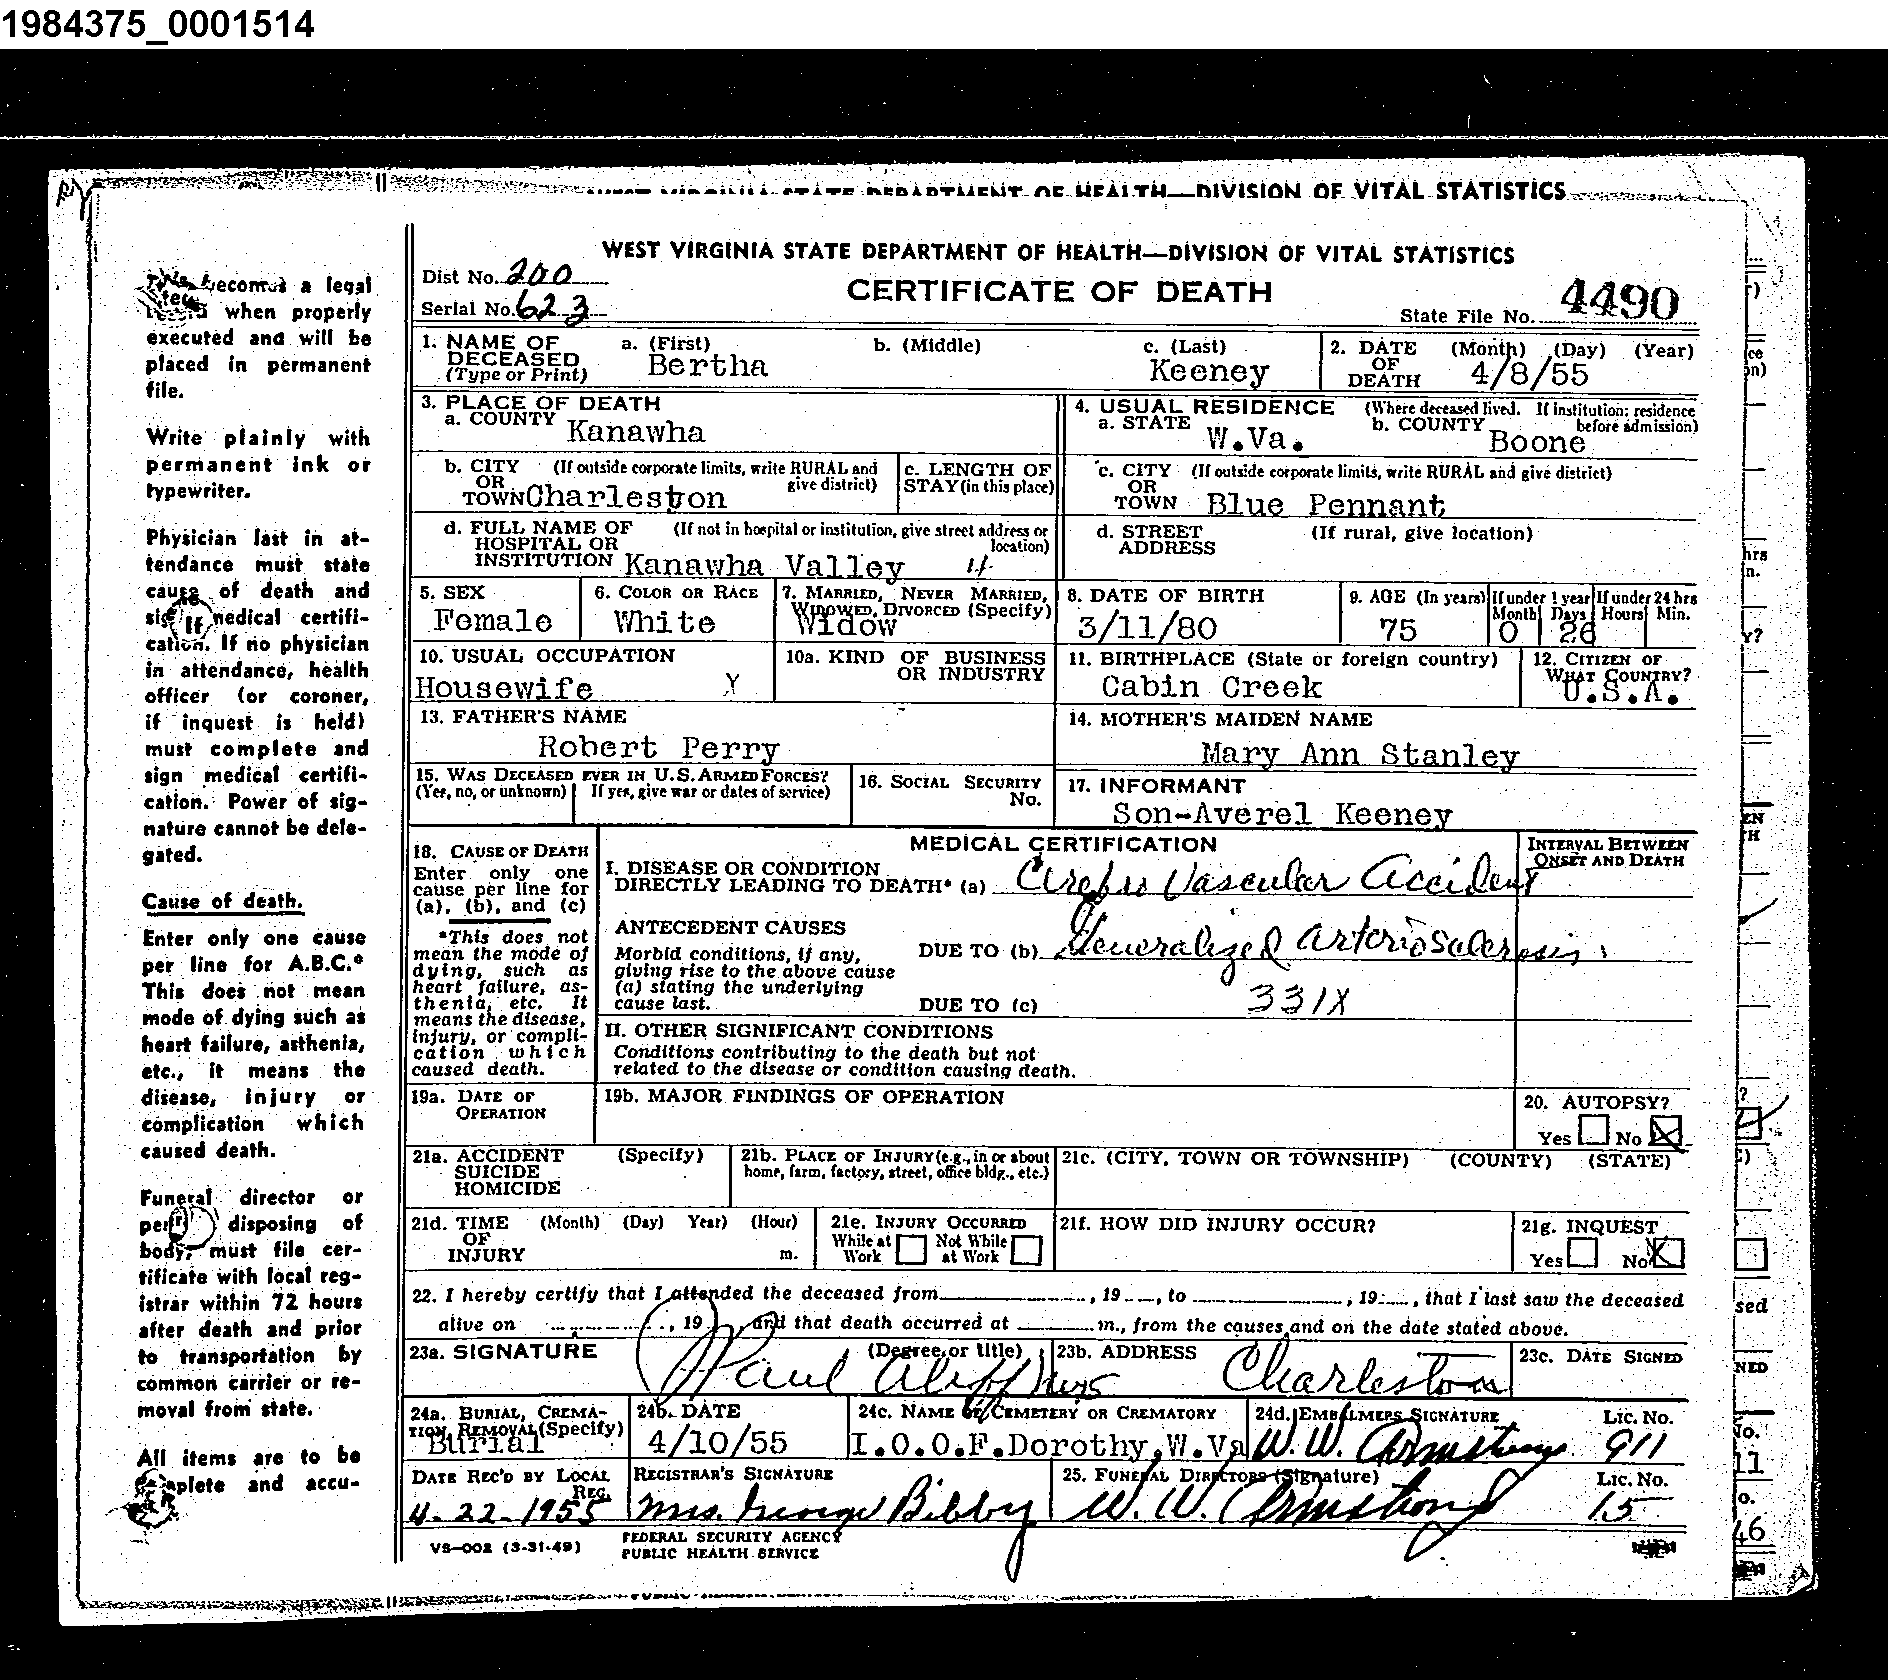 1984375_0001514
WEST VIRGINIA STATE DEPARTMENT OF HEALTH—DIVISION OF VITAL STATISTICS
WEST VIRGINIA STATE DEPARTMENT OF HEALTH—DIVISION OF VITAL STATISTICS
Dist No. 200
CERTIFICATE OF DEATH
Serial No. 623
State File No. 4490
becomes a legal
when properly
executed and will be
placed in permanent
file.
Write plainly with
permanent ink or
typewriter.
Physician last in at-
tendance must state
cause of death and
sign medical certifi-
cation. If no physician
in attendance, health
officer (or coroner,
if inquest is held)
must complete and
sign medical certifi-
cation. Power of sig-
nature cannot be dele-
gated.
Cause of death.
Enter only one cause
per line for A.B.C.*
This does not mean
mode of dying such as
heart failure, asthenia,
etc., it means the
disease, injury or
complication which
caused death.
Funeral director or
disposing of
body, must file cer-
tificate with local reg-
istrar within 72 hours
after death and prior
to transportation by
common carrier or re-
moval from state.
All items are to be
and accu-
1. NAME OF DECEASED (Type or Print) a. (First) b. (Middle) c. (Last)
Bertha Keeney
2. DATE OF DEATH (Month) (Day) (Year)
4/8/55
3. PLACE OF DEATH
a. COUNTY Kanawha
4. USUAL RESIDENCE (Where deceased lived. If institution: residence before admission)
a. STATE W.Va. b. COUNTY Boone
b. CITY OR TOWN (If outside corporate limits, write RURAL and give district) Charleston
c. LENGTH OF STAY (in this place)
c. CITY OR TOWN (If outside corporate limits, write RURAL and give district) Blue Pennant
d. FULL NAME OF HOSPITAL OR INSTITUTION (If not in hospital or institution, give street address or location) Kanawha Valley
d. STREET ADDRESS (If rural, give location)
5. SEX Female
6. COLOR OR RACE White
7. MARRIED, NEVER MARRIED, WIDOWED, DIVORCED (Specify) Widow
8. DATE OF BIRTH 3/11/80
9. AGE (In years) 75
If under 1 year Month 0 Days 26
If under 24 hrs Hours Min.
10. USUAL OCCUPATION Housewife Y
10a. KIND OF BUSINESS OR INDUSTRY
11. BIRTHPLACE (State or foreign country) Cabin Creek
12. CITIZEN OF WHAT COUNTRY? U.S.A.
13. FATHER'S NAME Robert Perry
14. MOTHER'S MAIDEN NAME Mary Ann Stanley
15. WAS DECEASED EVER IN U.S. ARMED FORCES? (Yes, no, or unknown) If yes, give war or dates of service)
16. SOCIAL SECURITY No.
17. INFORMANT Son-Averel Keeney
18. CAUSE OF DEATH
Enter only one
cause per line for
(a), (b), and (c)
*This does not
mean the mode of
dying, such as
heart failure, as-
thenia, etc. It
means the disease,
injury, or compli-
cation which
caused death.
MEDICAL CERTIFICATION
INTERVAL BETWEEN ONSET AND DEATH
I. DISEASE OR CONDITION DIRECTLY LEADING TO DEATH* (a) Cerebro Vascular Accident
ANTECEDENT CAUSES
Morbid conditions, if any,
giving rise to the above cause
(a) stating the underlying
cause last.
DUE TO (b) Generalized Arteriosclerosis
DUE TO (c) 331X
II. OTHER SIGNIFICANT CONDITIONS
Conditions contributing to the death but not
related to the disease or condition causing death.
19a. DATE OF OPERATION
19b. MAJOR FINDINGS OF OPERATION
20. AUTOPSY?
Yes No X
21a. ACCIDENT SUICIDE HOMICIDE (Specify)
21b. PLACE OF INJURY (e.g., in or about home, farm, factory, street, office bldg., etc.)
21c. (CITY, TOWN OR TOWNSHIP) (COUNTY) (STATE)
21d. TIME OF INJURY (Month) (Day) Year) (Hour) m.
21e. INJURY OCCURRED While at Work Not While at Work
21f. HOW DID INJURY OCCUR?
21g. INQUEST
Yes No X
22. I hereby certify that I attended the deceased from , 19 , to , 19 , that I last saw the deceased
alive on , 19 , and that death occurred at m., from the causes and on the date stated above.
23a. SIGNATURE (Degree or title) Paul
23b. ADDRESS Charleston
23c. DATE SIGNED
24a. BURIAL, CREMATION, REMOVAL (Specify) Burial
24b. DATE 4/10/55
24c. NAME OF CEMETERY OR CREMATORY I.O.O.F. Dorothy, W.Va
24d. EMBALMERS SIGNATURE W. W. Armstrong
Lic. No. 911
DATE REC'D BY LOCAL REG. 4-22-1955
REGISTRAR'S SIGNATURE Mrs. George Bibby
25. FUNERAL DIRECTORS (Signature) W. W. Armstrong
Lic. No. 15
VS-002 (3-31-49)
FEDERAL SECURITY AGENCY
PUBLIC HEALTH SERVICE